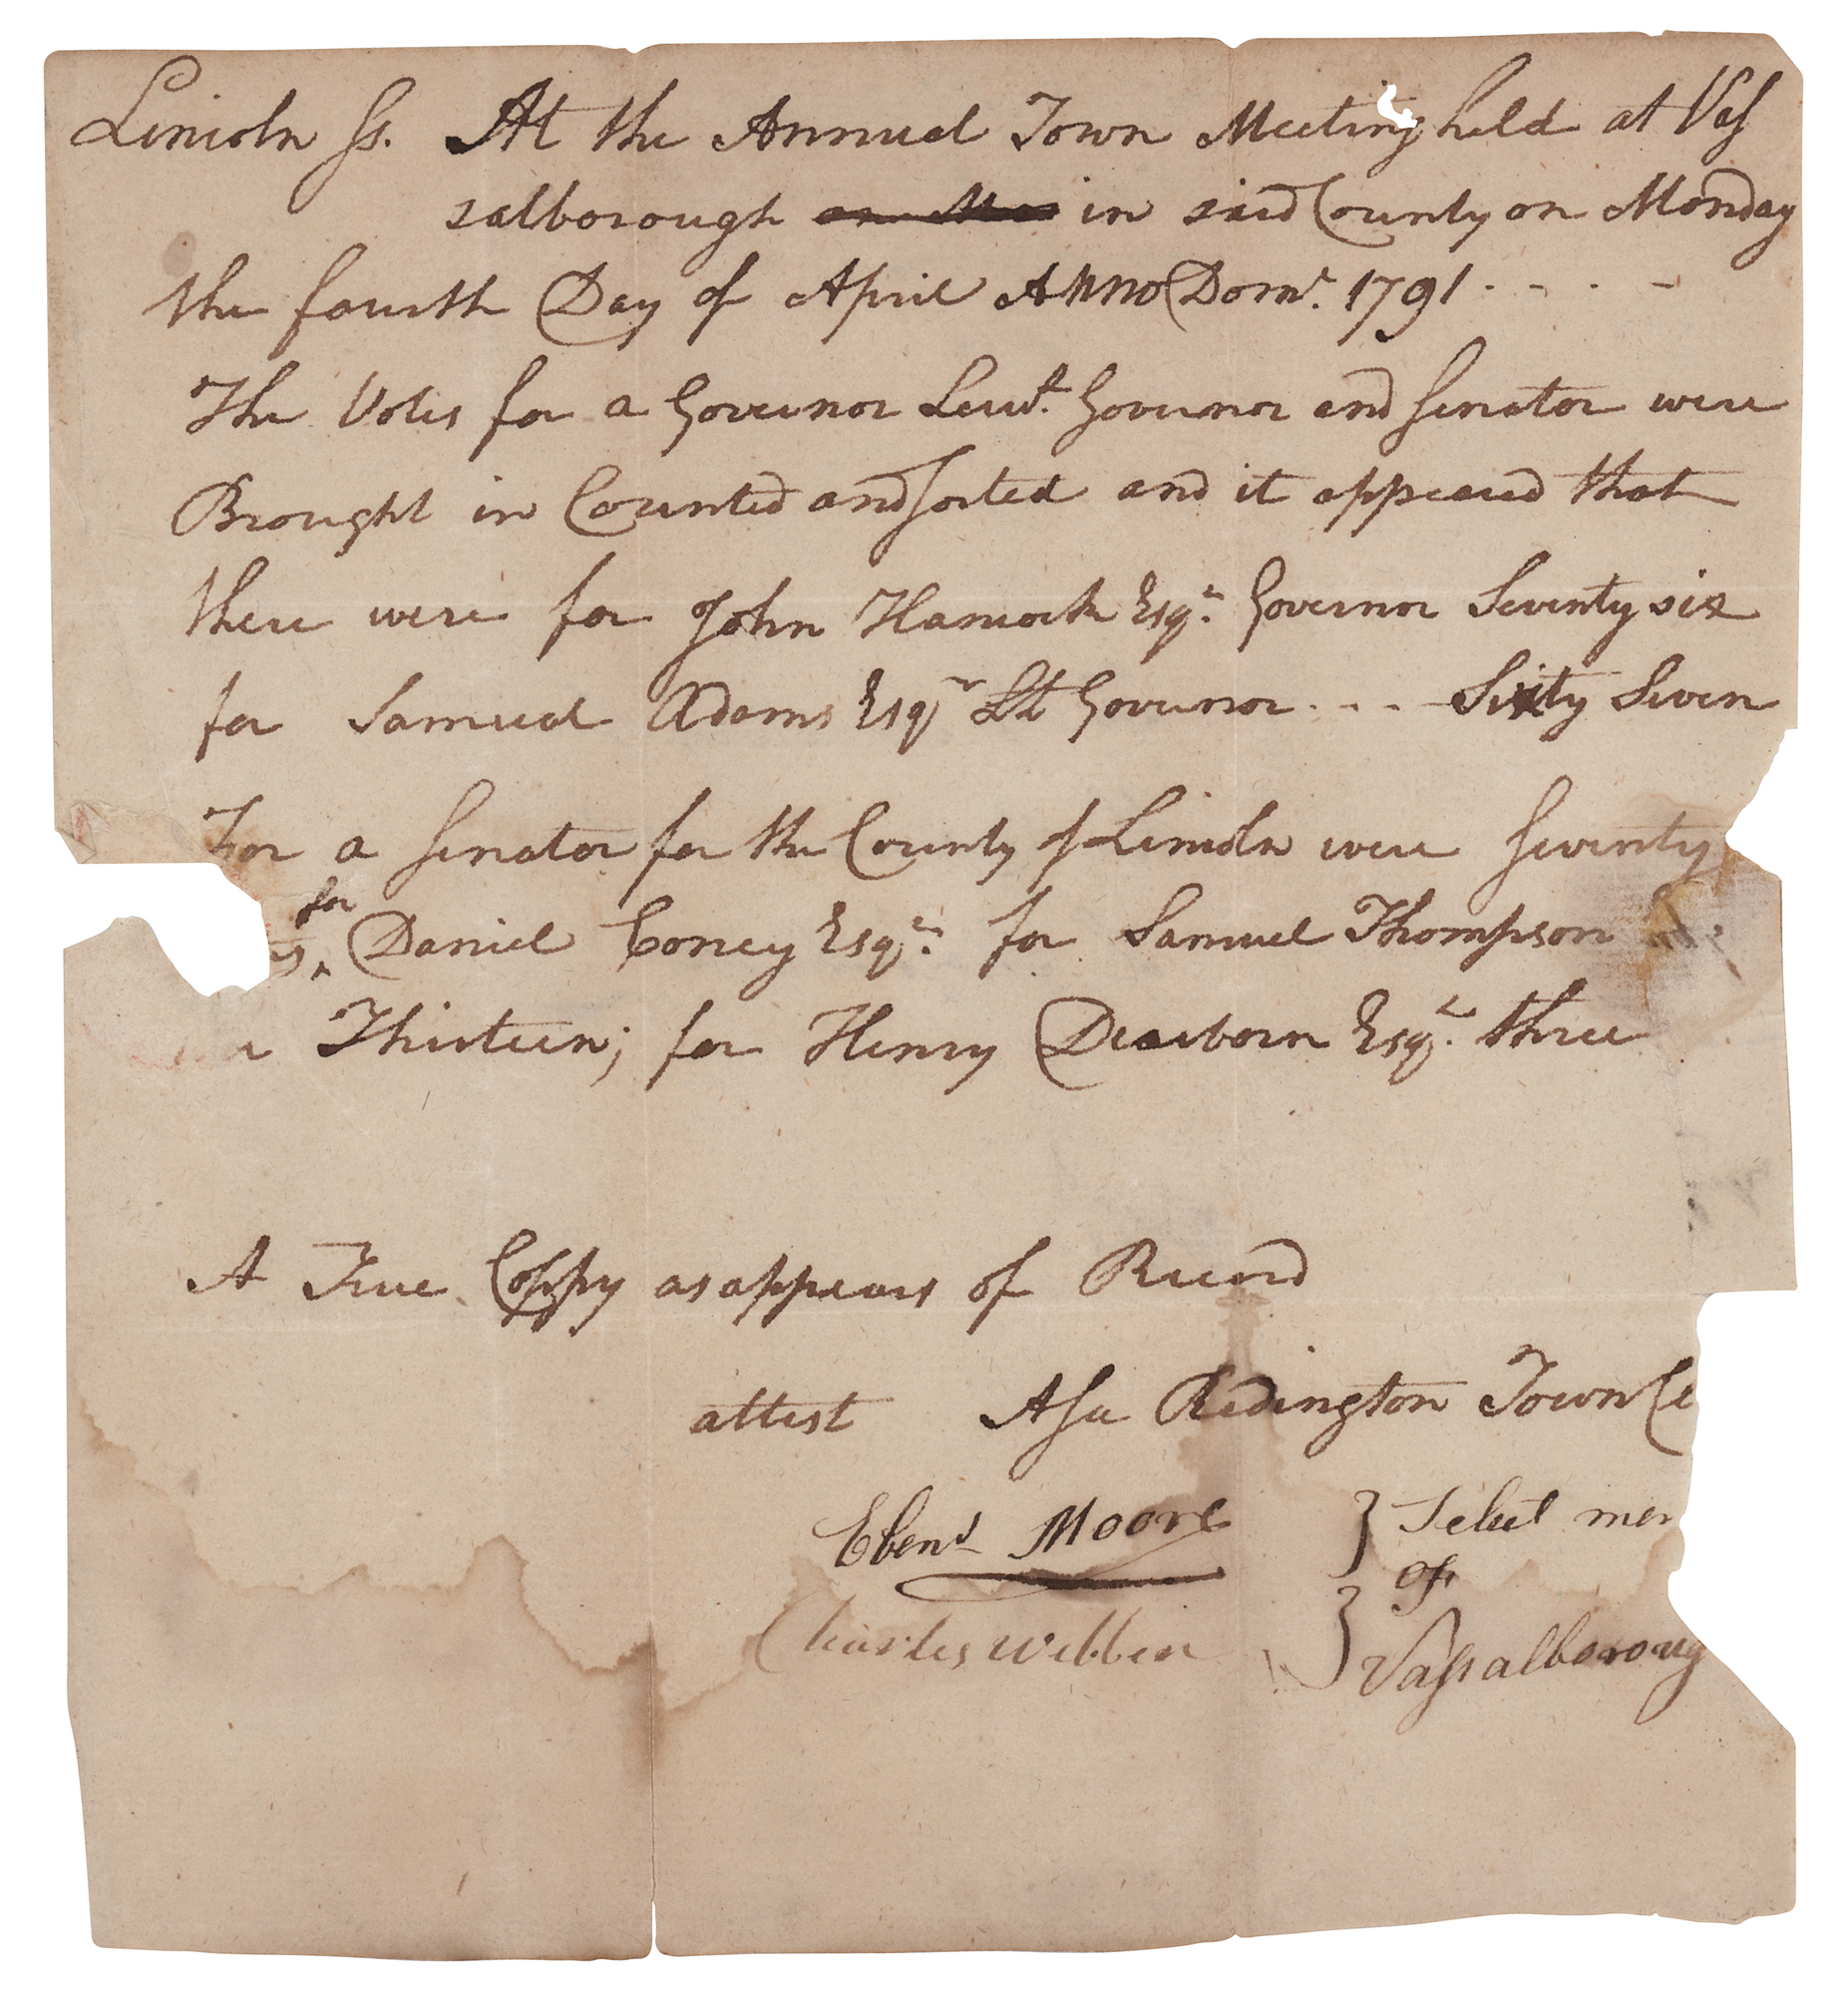 Lincoln ss. At the Annual Town Meeting held at Vas
salborough on Mon in said County on Monday
the fourth Day of April Anno Domi. 1791 . - . -
The Votes for a Governor Leut. Governor and Senator were
Brought in Counted and Sorted and it appeared that
there were for John Hancock Esqr. Governor Seventy six
for Samuel Adams Esqr Lt Governor . - . - Sixty Seven
For a Senator for the County of Lincoln were Seventy
for
Daniel Coney Esqr. for Samuel Thompson
Thirteen; for Henry Dearborn Esqr. three
A True Coppy as appears of Record
attest Asa Redington Town Cl
Ebenr Moore } Select men
of
Charles Webber } Vassalboroug